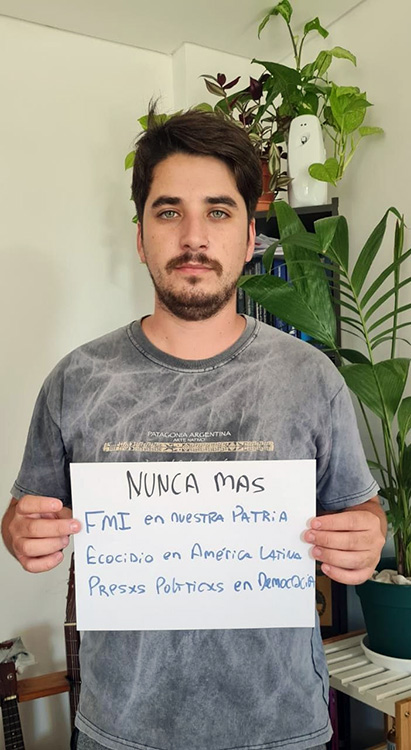 PATAGONIA ARGENTINA
ARTE NATIVO
NUNCA MAS
FMI en nuestra PATRIA
Ecocidio en América Latina
Presxs Politicxs en Democracia